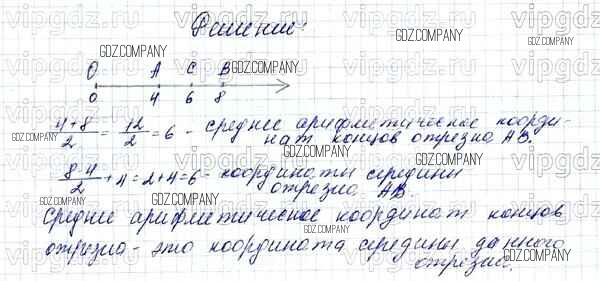 Решение:
O A C B
0 4 6 8
4+8/2 = 12/2 = 6 - среднее арифметическое коорди-
нат концов отрезка AB.
8-4/2 + 4 = 2+4 = 6 - координаты середины
отрезка AB.
Среднее арифметическое координат концов
отрезка - это координата середины данного
отрезка.
GDZ.COMPANY
vipgdz.ru